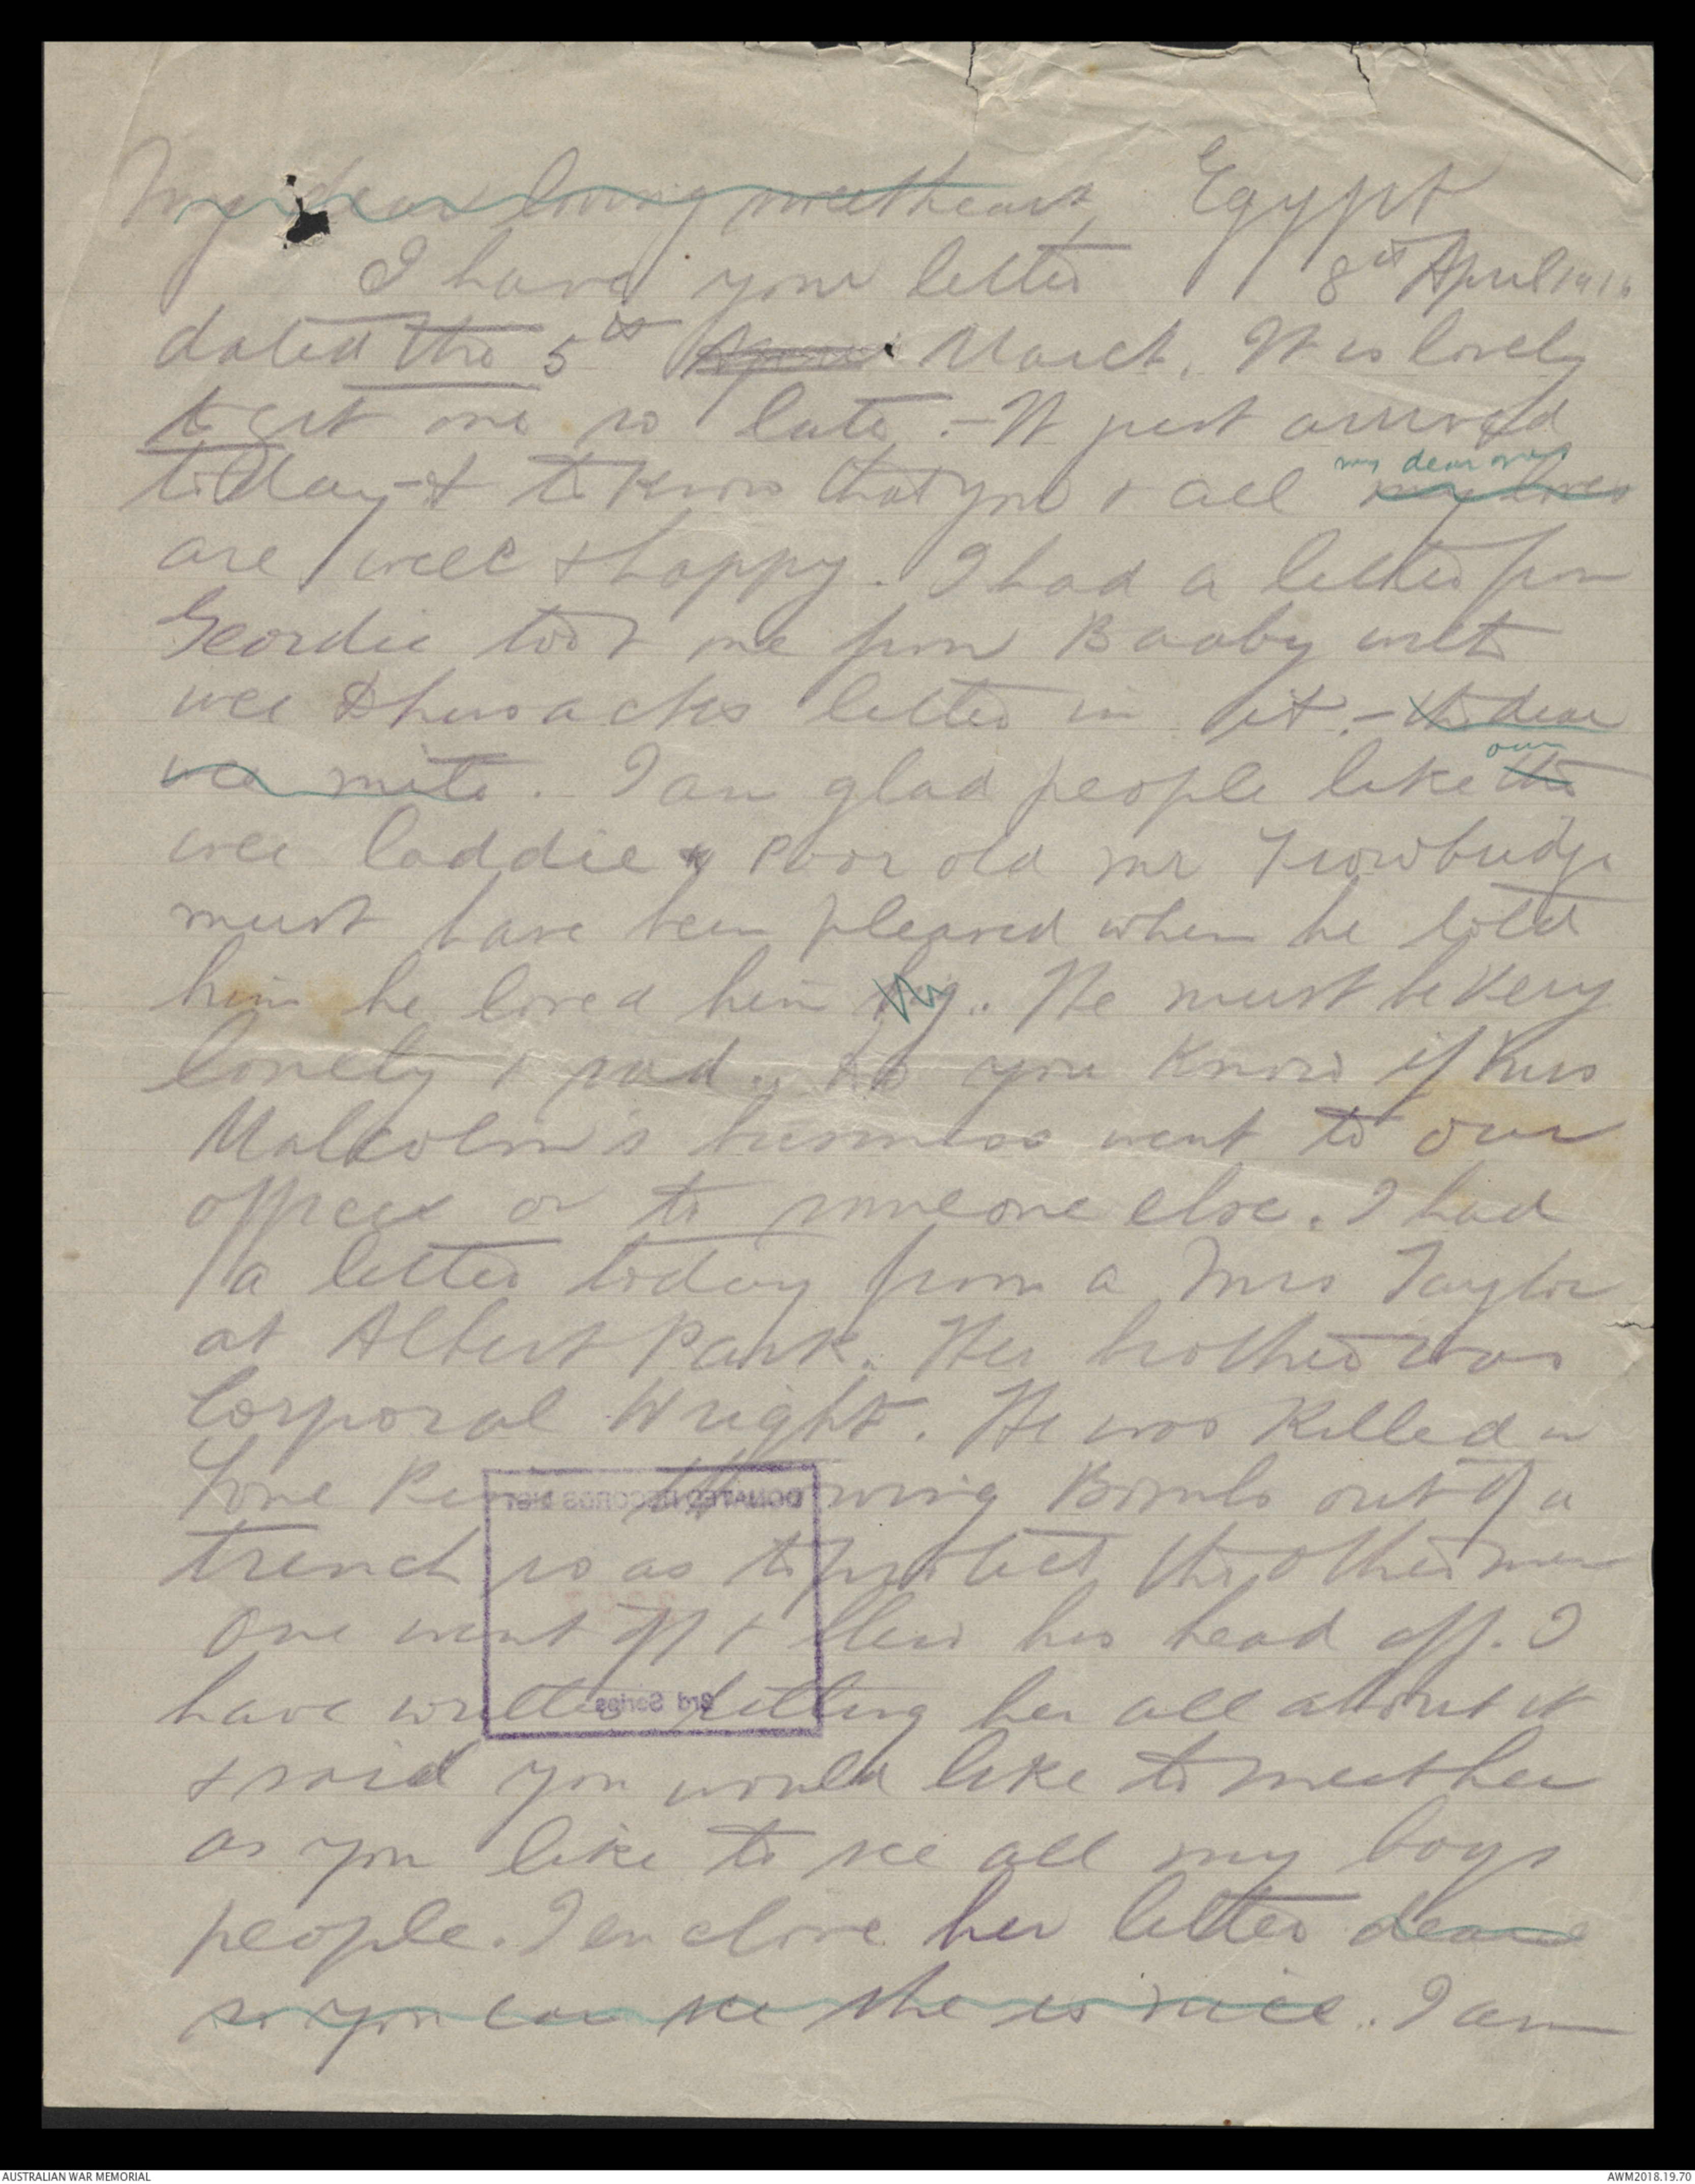 My dear loving sweetheart, Egypt
I have your letter 8th April 1916
dated the 5th March. It is lovely
to get one so late. - It just arrived
today - & to know that you & all my loves
my dear ones
are well & happy. I had a letter from
Geordie too & one from Baaby with
wee letter in it. - the dear
wee mite. I am glad people like the
our
wee laddie & Poor old Mr Trowbridge
must have been pleased when he told
him he loved him. He must be very
lonely & sad. Do you know if
Malcolm's business went to our
office or to someone else. I had
a letter today from a Mrs Taylor
at Albert Park. Her brother was
Corporal Wright. He was killed in
Lone Pine throwing Bombs out of a
trench so as to protect the other men
One went off & blew his head off. I
have written telling her all about it
& said you would like to meet her
as you like to see all my boys
people. I enclose her letter dear
so you can see she is nice. I am
DONATED RECORDS LIST
3rd Series
AUSTRALIAN WAR MEMORIAL
AWM2018.19.70